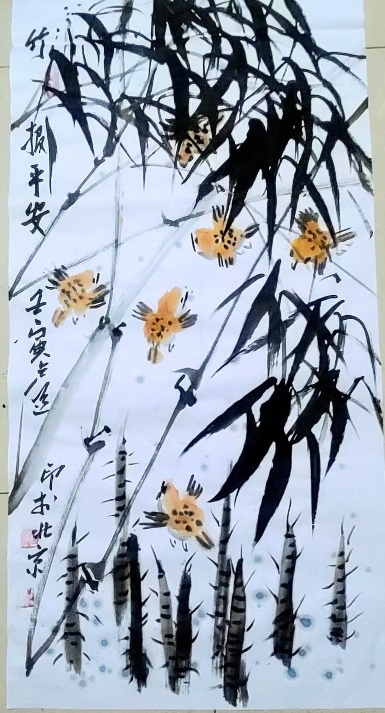 竹报平安
壬寅年
印于北京